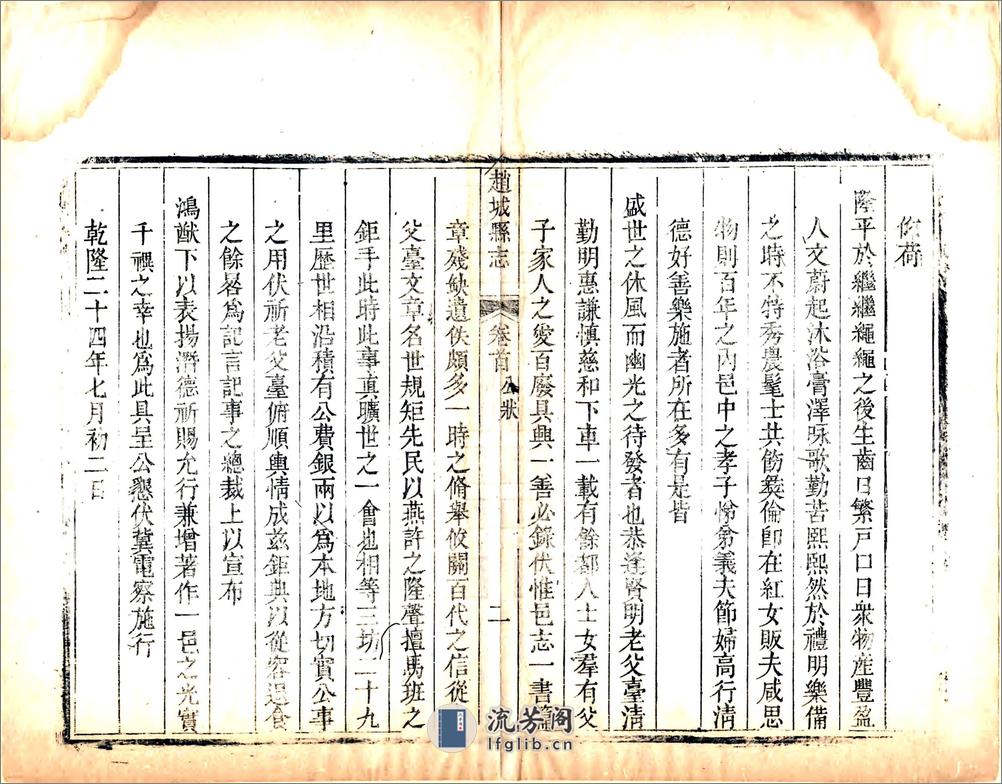 仰荷
隆平於繼繼繩繩之後生齒日繁戸口日衆物産豐盈
人文蔚起沐浴膏澤咏歌勤苦熙熙然於禮明樂備
之時不特秀農髦士共飭彜倫卽在紅女販夫咸思
物則百年之內邑中之孝子悌弟義夫節婦高行清
德好善樂施者所在多有是皆
盛世之休風而幽光之待發者也恭逢賢明老父臺清
勤明惠謙慎慈和下車一載有餘鄰人士女羣有父
子家人之愛百廢具興一善必錄伏惟邑志一書篇
趙城縣志
卷首 公狀
二
章殘缺遺佚頗多一時之脩舉攸關百代之信從
父臺文章名世規矩先民以燕許之隆聲擅馬班之
鉅手此時此事真曠世之一會也相等三坊二十九
里歷世相沿積有公費銀兩以爲本地方切實公事
之用伏祈老父臺俯順輿情成茲鉅典以從容退食
之餘畧爲記言記事之總裁上以宣布
鴻猷下以表揚潛德祈賜允行兼增著作一邑之光實
千禩之幸也爲此具呈公懇伏冀電察施行
乾隆二十四年七月初二日
流芳閣
lfglib.cn